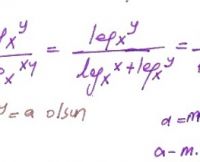 log_x^y / log_x^xy = log_x^y / (log_x^x + log_x^y) =
y = a olsun
a = m
a - m.